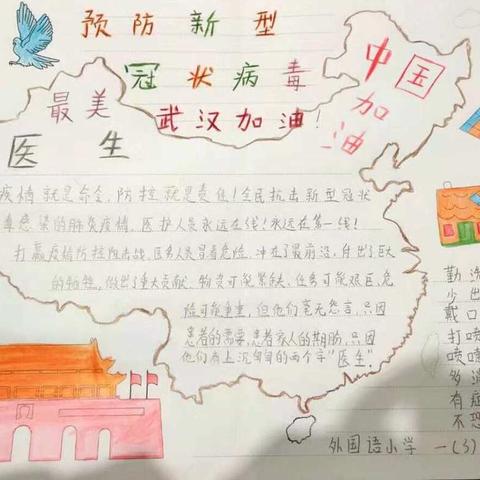 预防新型
冠状病毒
武汉加油!
中国加油
最美
医生
疫情就是命令,防控就是责任!全民抗击新型冠状
毒感染的肺炎疫情,医护人员永远在线!永远在第一线!
打赢疫情防控阻击战,医务人员冒着危险,冲在了最前沿,付出了巨大
的牺牲,做出了重大贡献,物资可能紧缺,任务可能艰巨,危
险可能重重,但他们毫无怨言,只因
患者的需要,患者家人的期盼,只因
他们有上沉甸甸的两个字"医生"。
勤洗
少出
戴口
打喷
喷嚏
多消
有症
不恐
外国语小学 一(3)